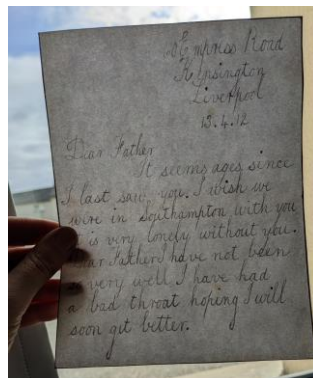 Empress Road
Kensington
Liverpool
15.4.12
Dear Father
It seems ages since
I last saw you. I wish we
were in Southampton with you
it is very lonely without you.
Dear Father I have not been
very well I have had
a bad throat hoping I will
soon get better.